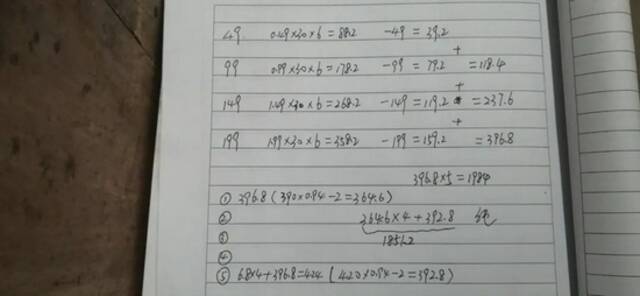 49 0.49×30×6=88.2 -49=39.2
+
99 0.99×30×6=178.2 -99=79.2 =118.4
+
149 1.49×30×6=268.2 -149=119.2 =237.6
+
199 1.99×30×6=358.2 -199=159.2 =396.8
396.8×5=1984
① 396.8(390×0.94-2=364.6)
② 364.6×4+392.8 纯
③ 1851.2
④
⑤ 6.8×4+396.8=424(420×0.94-2=392.8)